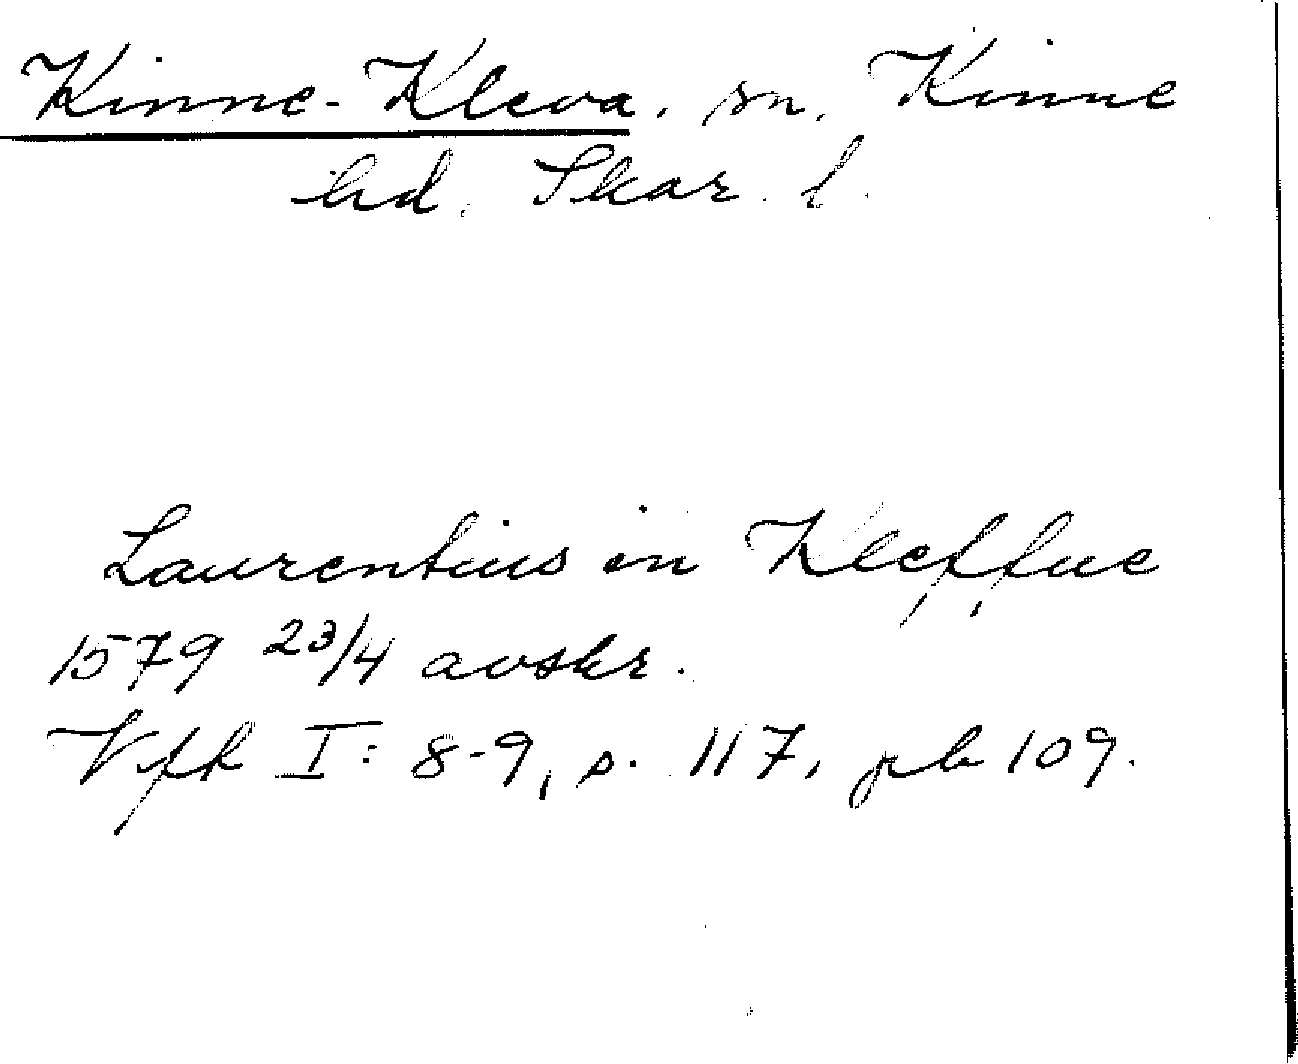 Kinne-Kleva, sn, Kinne
hd. Skar. l.
Laurentius in Kleffue
1579 23/4 avskr.
Vfk I: 8-9, s. 117, pb 109.